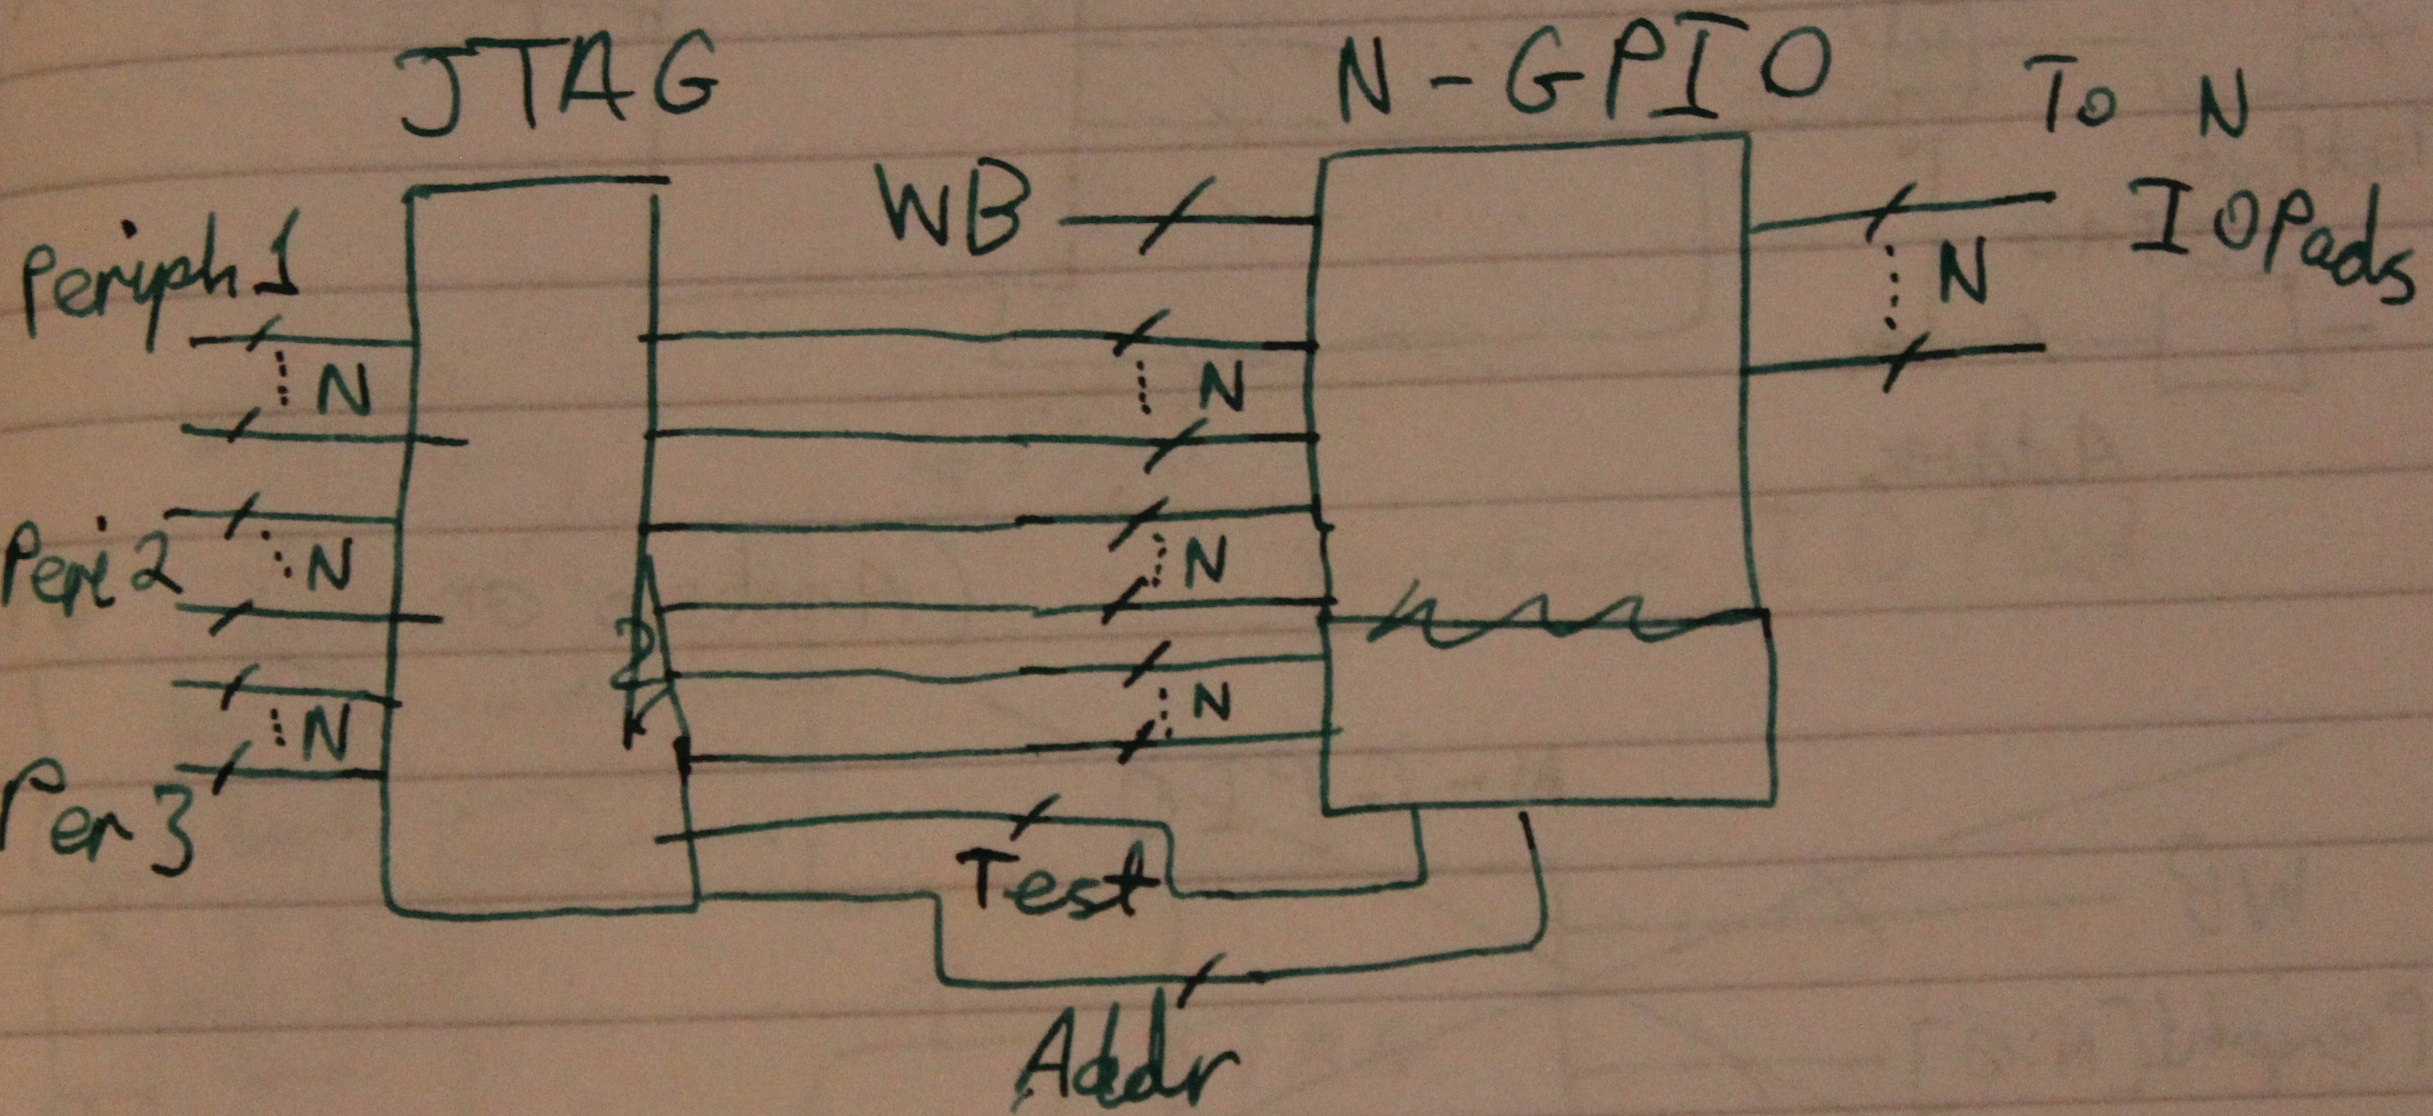 JTAG
N-GPIO
To N
IOPads
WB
Periph 1
N
N
N
Peri 2
N
N
N
N
Per 3
Test
Addr